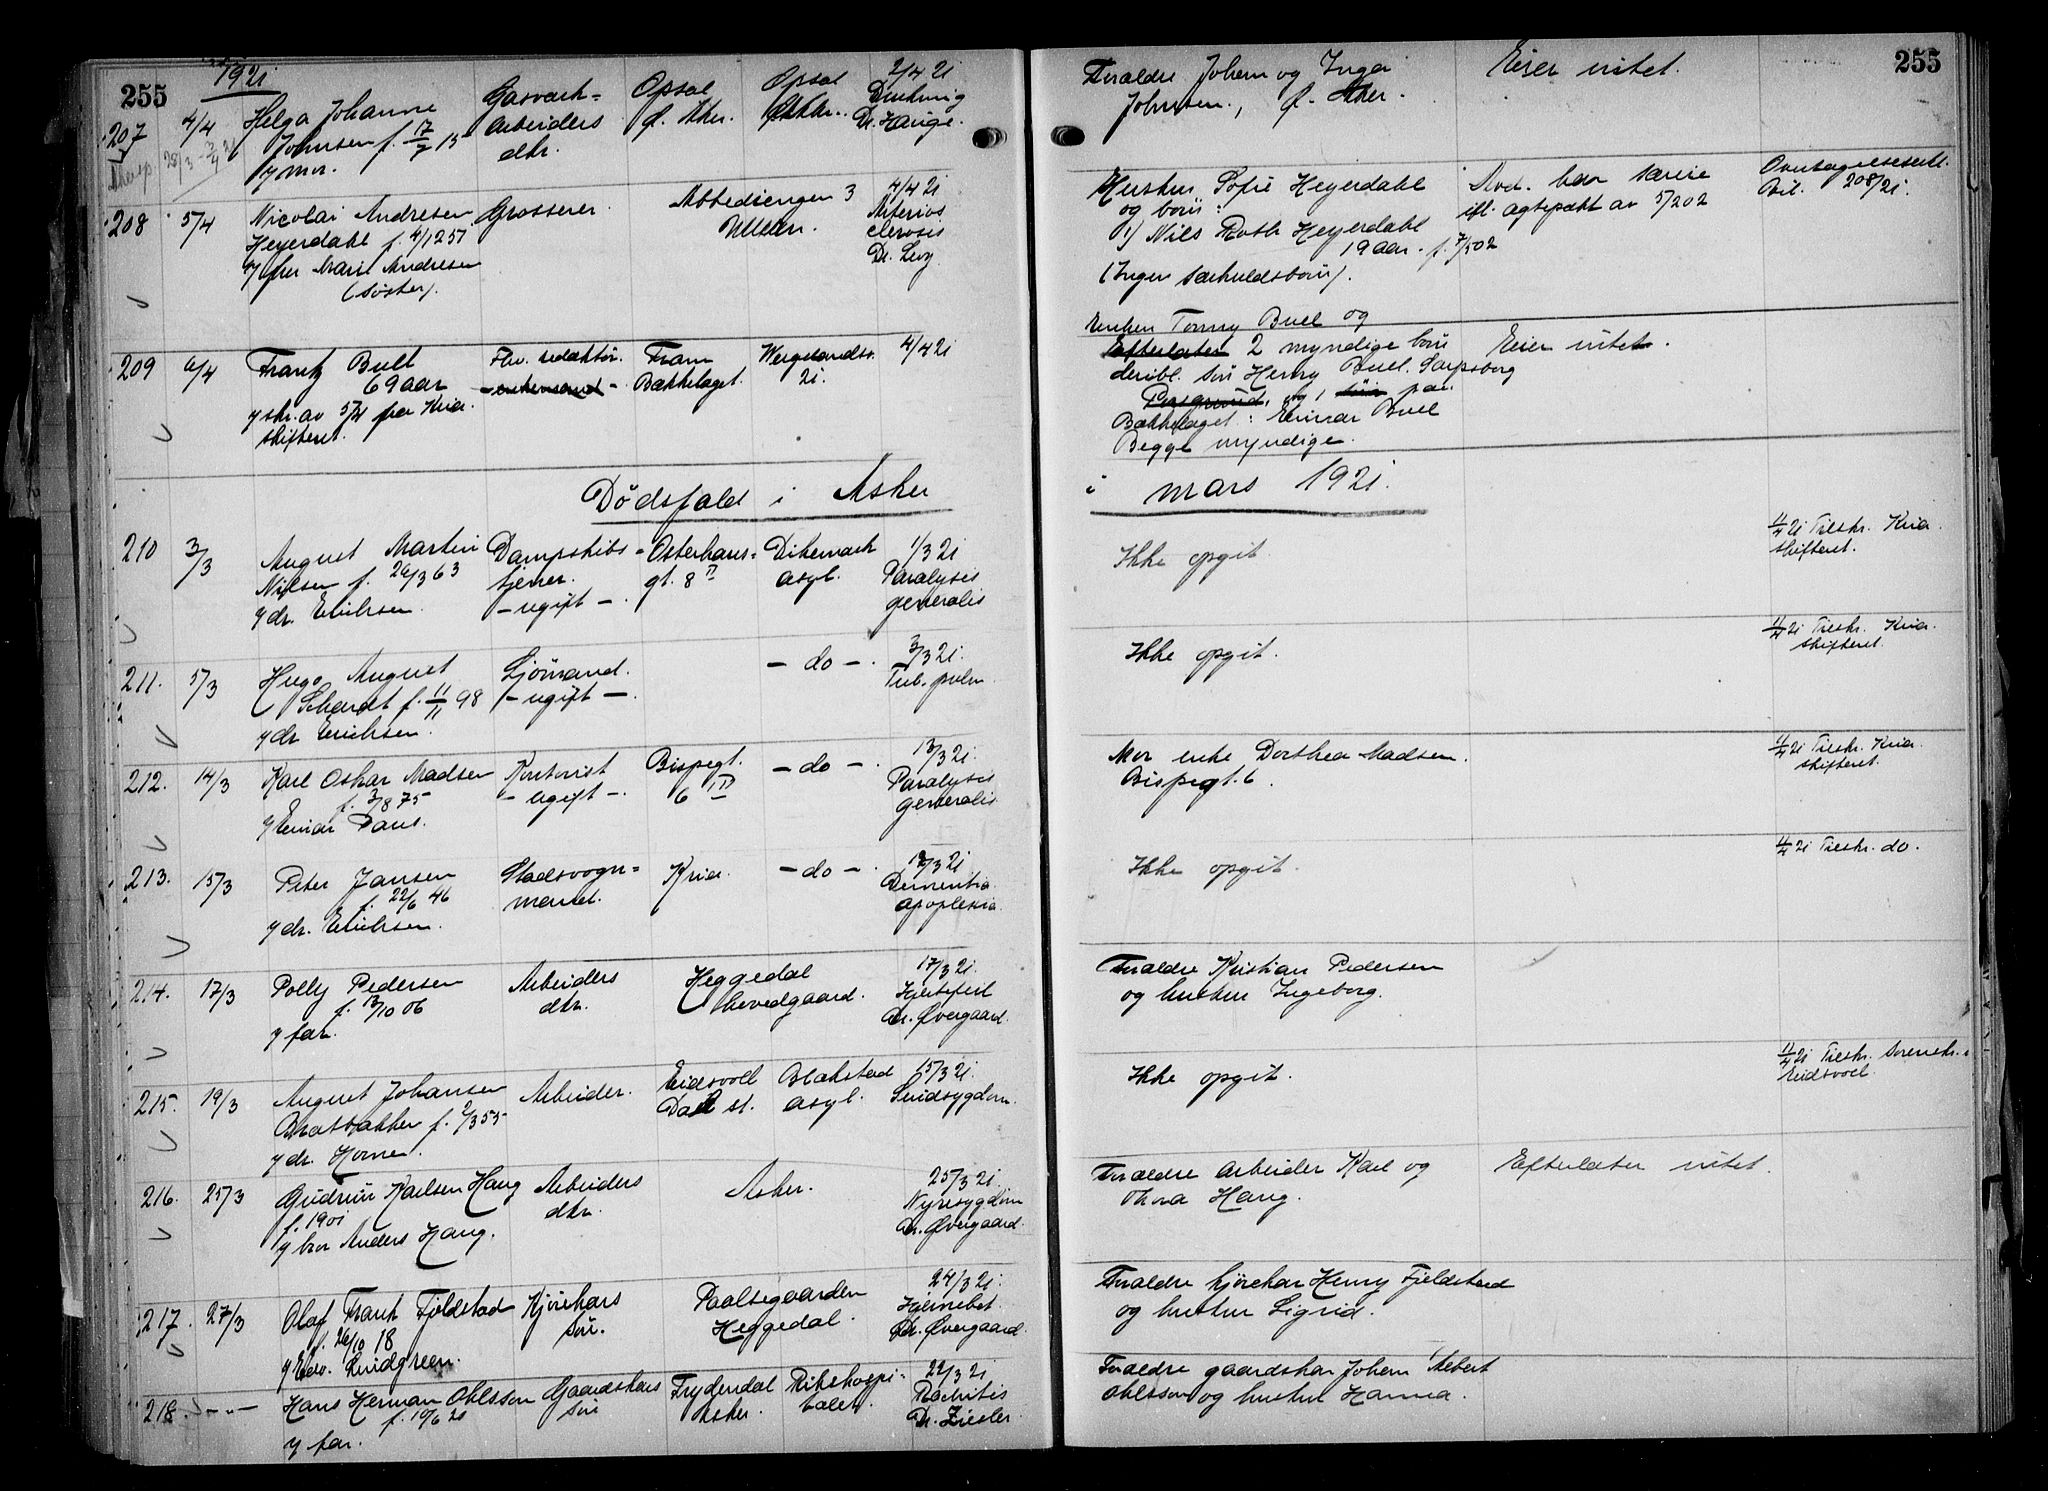 255
1921
207 4/4 Helga Johanne Gasverk= Opsal Opsal 2/4 21
Johnsen f. 17/7 15 arbeiders Ø. Aker. Ø. Aker.
y mor. dtr. Dr. Hauge.
Forældre Johan og Inga Eier intet. 255
Johnsen., Ø. Aker.
208 5/4 Nicolai Andresen Grosserer. Abbediengen 3 4/4 21
Heyerdahl f. 4/12 57 Ullern. Arterios
y fru Marie Andresen clerosis
(søster). Dr. Levy
Hustru Sofie Heyerdahl Avd. har særeie
og barn: ifl. agtepakt av 5/2 02 Bil. 208/21.
1) Nils Roth Heyerdahl
19 aar. f. 7/5 02
(Ingen særkuldsbarn).
209 6/4 Frantz Bull Fhv. redaktør. Fram Wergelandsv. 4/4 21
69 aar - enkemand - Bækkelaget. 21.
y skr. av 5/4 fra Kria.
skifteret.
Enken Tommy Bull og
Efterlater 2 myndige barn Eier intet.
deribl. søn Henry Bull. Sarpsborg
Porsgrund, og 1 søn paa
Bækkelaget: Einar Bull
Begge myndige.
Dødsfald i Asker i mars 1921.
210 3/3 August Martin Dampskibs= Osterhaus= Dikemark 1/3 21
Nilsen f. 26/3 63 fyrer. gt. 8 II asyl. Paralysis
y dr. Erichsen. - ugift -. generalis
Ikke opgit. 11/4 21 Tilskr. Kria.
skifteret.
211. 5/3 Hugo August Sjømand. - do -. 3/3 21.
f. 11/11 98 - ugift -. Tub. pulm.
y dr. Erichsen.
Ikke opgit. 11/4 21 Tilskr. Kria.
skifteret.
212. 14/3 Karl Oskar Madsen Kontorist Bispegt. - do -. 13/3 21.
f. 3/8 75 - ugift -. 6 III Paralysis
y Einar Paus. generalis
Mor enke Dorthea Madsen. 11/4 21 Tilskr. Kria.
Bispegt. 6. skifteret.
213. 15/3 Peter Jansen Stadsvogn= Kria. - do -. 12/3 21
f. 22/6 46 mand. Dementia
y dr. Erichsen. apoplexia.
Ikke opgit. 11/4 21 Tilskr. do.
214. 17/3 Polly Pedersen Arbeiders Heggedal 17/3 21.
f. 13/10 06 dtr. hovedgaard. Hjertefeil
y far. Dr. Øvergaard.
Forældre Kristian Pedersen
og hustru Ingeborg.
215. 19/3 August Johansen Arbeider. Eidsvoll Blakstad 15/3 21.
Bratbakken f. 2/3 55 Dal st. asyl. Sindsygdom.
y dr. Horne.
Ikke opgit. 11/4 21 Tilskr. Sorenskr. i
Eidsvoll.
216. 25/3 Gudrun Karlsen Haug Arbeiders Asker. 25/3 21.
f. 1901 dtr. Nyresygdom
y bror Anders Haug. Dr. Øvergaard.
Forældre arbeider Karl og Efterlater intet.
Thora Haug.
217. 27/3 Olaf Frank Fjeldstad Kjørekars Paalsegaarden 24/3 21.
f. 26/10 18 søn. Heggedal. Hjernebet.
y Edv. Lindgreen. Dr. Øvergaard.
Forældre kjørekar Henry Fjeldstad
og hustru Sigrid.
218. - " - Hans Herman Ohlsson Gaardskars Frydendal Rikshospi= 22/3 21
f. 10/6 20 søn Asker. talet. Rachitis
y far. Dr. Ziesler.
Forældre gaardskar Johan Albert
Ohlsson og hustru Hanna.